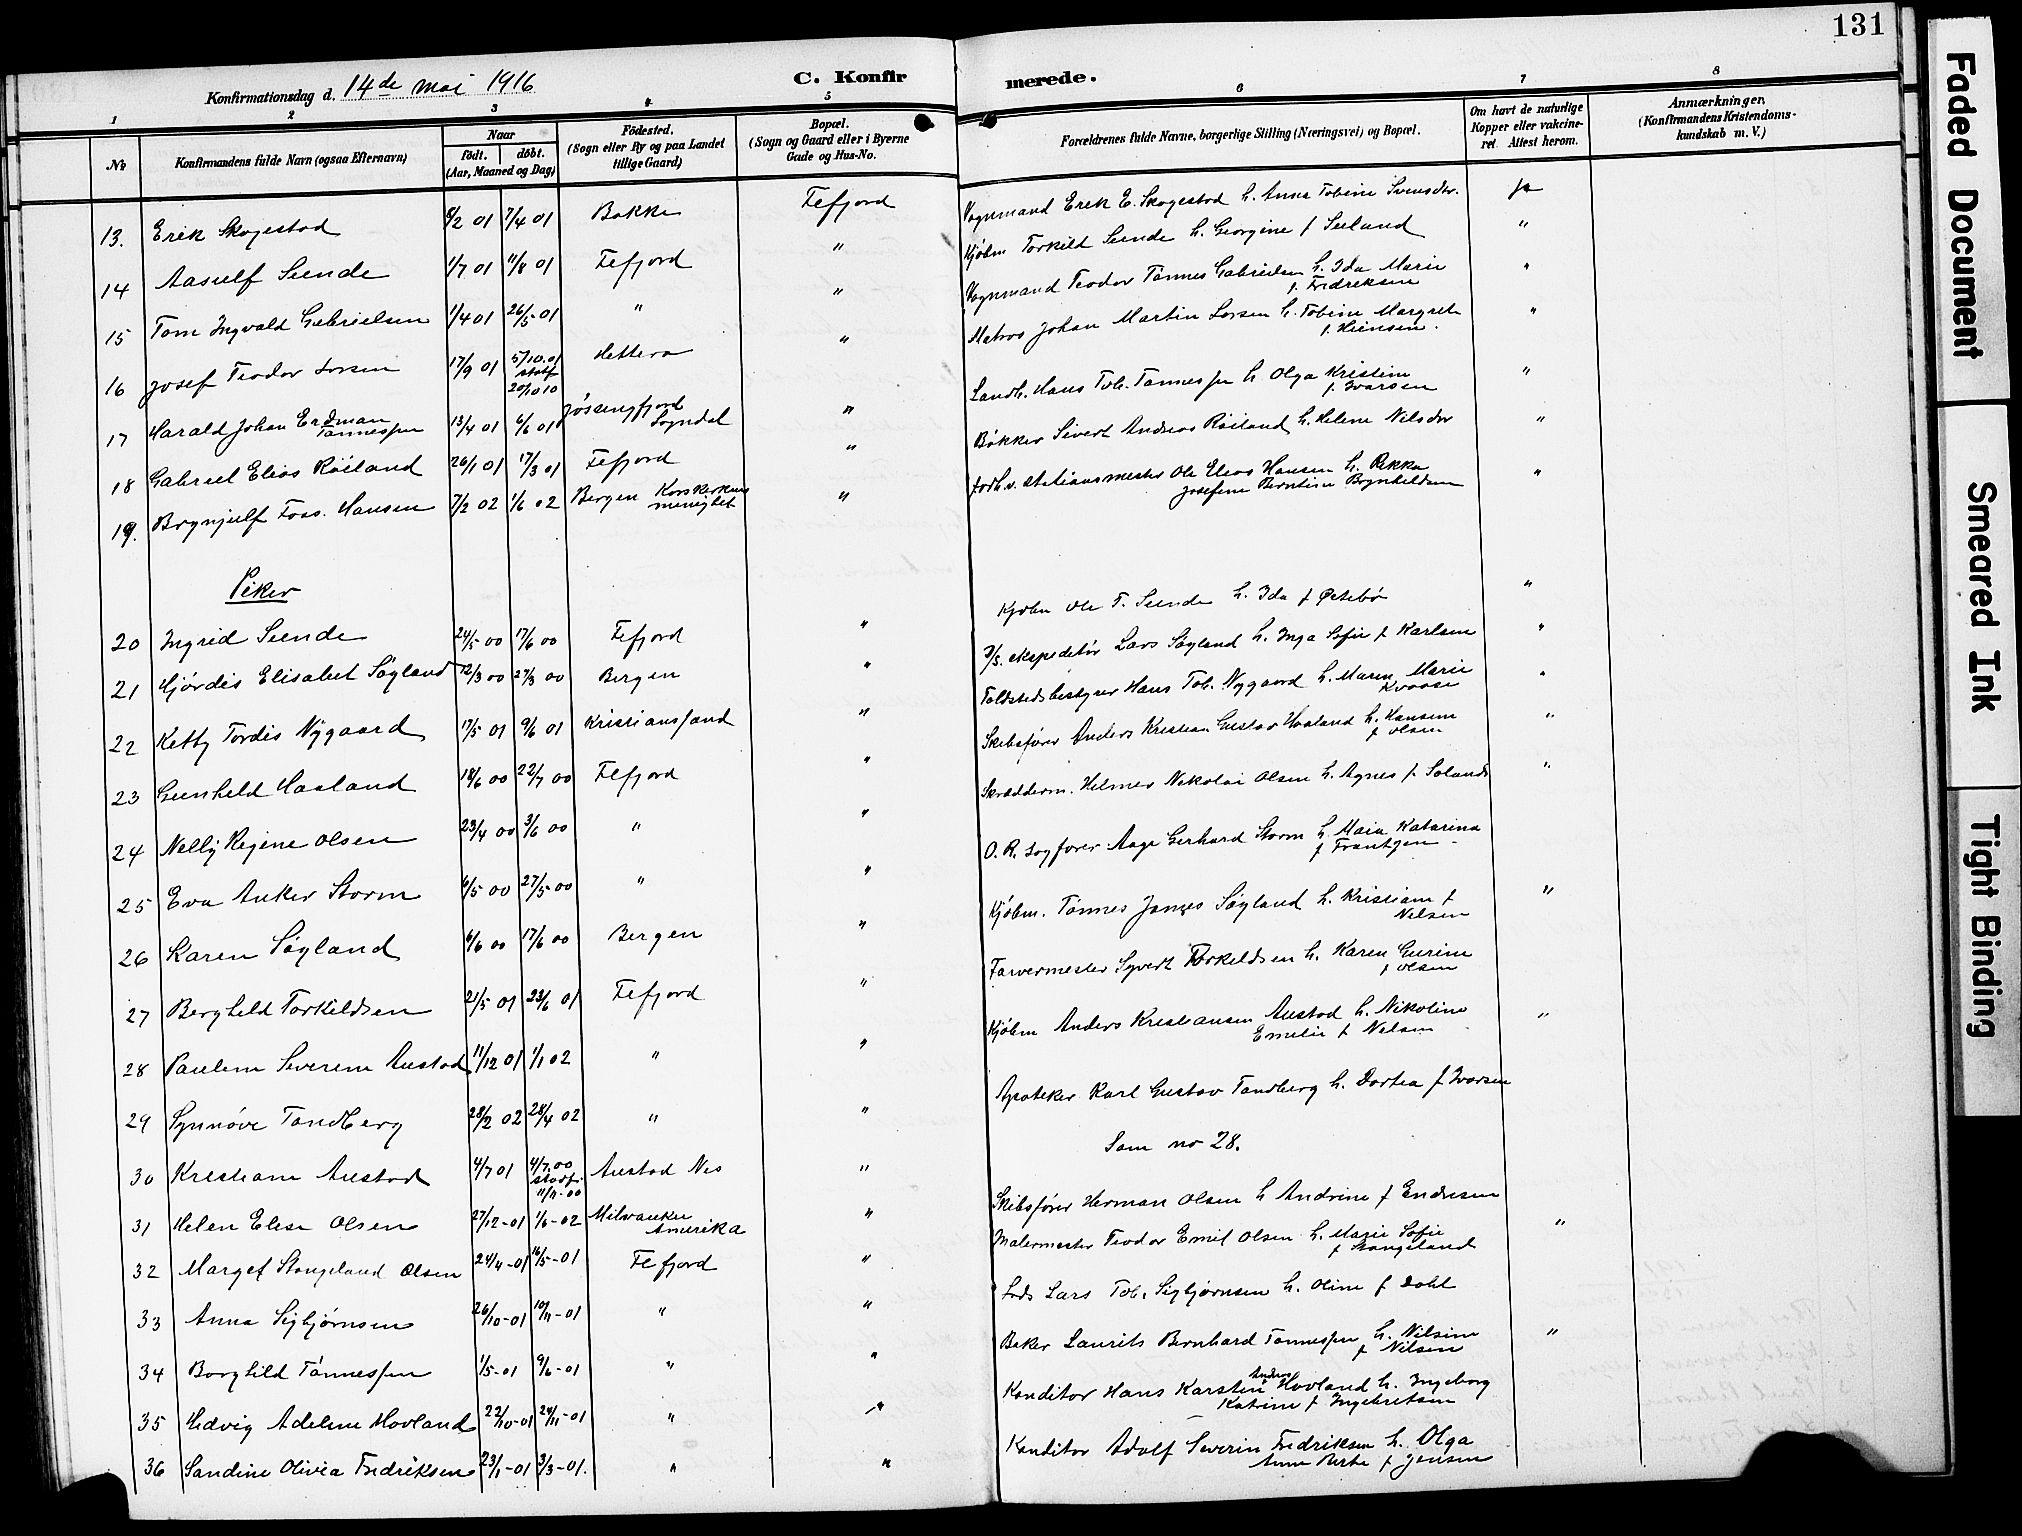 131
Konfirmationsdag d. 14de mai 1916
C. Konfirmerede.
1 2 3 4 5 6 7 8
No
Konfirmandens fulde Navn (ogsaa Efternavn)
Naar
født. døbt.
(Aar, Maaned og Dag)
Fødested.
(Sogn eller By og paa Landet
tillige Gaard)
Bopæl.
(Sogn og Gaard eller i Byerne
Gade og Hus-No.
Forældrenes fulde Navne, borgerlige Stilling (Næringsvei) og Bopæl.
Om havt de naturlige
Kopper eller vakcine-
ret Attest herom.
Anmærkninger.
(Konfirmandens Kristendoms-
kundskab m. V.)
13. Erik Skogestad 8/2 01 7/4 01 Bakke Fefjord Vognmand Erik E. Skogestad h. Anna Tobine Svensdtr. Ja
14 Aasulf Seende 1/7 01 11/8 01 Fefjord " Kjøbm Torkild Seende h. Georgine f Seeland "
15 Tom Ingvald Gabrielsen 1/4 01 26/5 01 " " Vognmand Teodor Tønnes Gabrielsen h. Ida Marie f. Fredriksen "
16 Josef Teodor Larsen 17/9 01 5/10.01 stadf 20/10 10 Hettera " Matros Johan Martin Larsen h. Tobine Margrete "
17 Harald Johan Erdman Tønnessen 13/4 01 6/6 01 Jøssengfjord Sogndal " Landh. Hans Tob. Tønnessen h Olga Kristine f. Ivarsen "
18 Gabriel Elias Røiland 26/1 01 17/3 01 Fefjord " Bøkker Sivert Andreas Røiland h. Helene Nilsdtr "
19. Brynjulf Foss. Hansen 7/2 02 1/6 02 Bergen Korskerkens menighet " forh.v. stationsmester Ole Elias Hansen h. Rikka Josefine Berntine Brynheldsen "
Piker
20 Ingrid Seende 24/5 00 17/6 00 Fefjord " Kjøbm Ole T. Seende h. Ida f Østebø "
21 Hjørdis Elisabet Søyland 12/3 00 27/3 00 Bergen " D/S. ekspeditør Lars Søyland h. Inga Sofie f Karlsen "
22 Ketty Tordis Nygaard 17/5 01 9/6 01 Kristiansand " Toldstedsbestyrer Hans Tob. Nygaard h. Maren Marie Kvaase "
23 Gunheld Haaland 18/6 00 22/7 00 Flefjord " Skibsfører Anders Kristian Gustav Haaland h. Hansine f Olsen "
24 Nelly Regine Olsen 23/4 00 3/6 00 " " Skrædderm. Helmer Nikolai Olsen h. Agnes f. Solands "
25 Eva Anker Storm 6/5 00 27/5 00 " " O. R. Sagfører Aage Gerhard Storm h. Maia Katarina f Frantzen
26 Karen Søyland 6/6 00 17/6 00 Bergen " Kjøbm. Tønnes James Søyland h. Kristiane f Nelsen "
27 Bergheld Torkeldsen 21/5 01 23/6 01 Fefjord " Farvermester Syvert Torkeldsen h. Karen Gurine f Olsen
28 Pauline Severine Austad 11/12 01 1/1 02 " " Kjøbm Anders Kristiansen Austad h. Nikoline Emelie f Nelsen "
29 Synnøve Tandberg 28/2 02 28/4 02 " " Apoteker Karl Gustav Tandberg h. Dortea f Ivarsen
30 Kristiane Austad 4/7 01 4/7.00 stadf. 11/11-00 Austad Nes " Som no 28.
31 Helen Elese Olsen 27/12-01 1/6-02 Milwaukee Amerika " Skibsfører Herman Olsen h Andrine f Endresen
32 Margit Stangeland Olsen 24/4-01 16/5-01 Flefjord " Malermester Teodor Emil Olsen h. Marie Sofie f Stangeland "
33 Anna Sigbjørnsen 26/10-01 10/11-01 " " Lods Lars Tob. Sigbjørnsen h. Oline f Dahl
34 Borghild Tønnessen 1/5-01 9/6-01 " " Baker Laurits Bernhard Tønnessen h. Nilsine f Nilsen "
35 Hedvig Adeline Hovland 22/10-01 24/11-01 " " Konditor Hans Karsten Anders Hovland h. Ingeborg Katrine f Ingebretsen
36 Sandine Olivia Fredriksen 23/1-01 3/3-01. " " Konditor Adolf Severin Fredriksen h. Olga Anne Berte f Jensen
Faded Document
Smeared Ink
Tight Binding